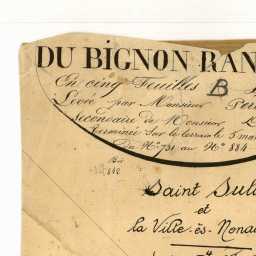 DU BIGNON RAN
En cinq Feuilles B
Levée par Monsieur Per
Secondaire de Monsieur L
Terminée sur le terrain le 5 mai
Du Nº 731 au Nº 884
Bis
842
Saint Sul
et
la Ville-ès-Nona